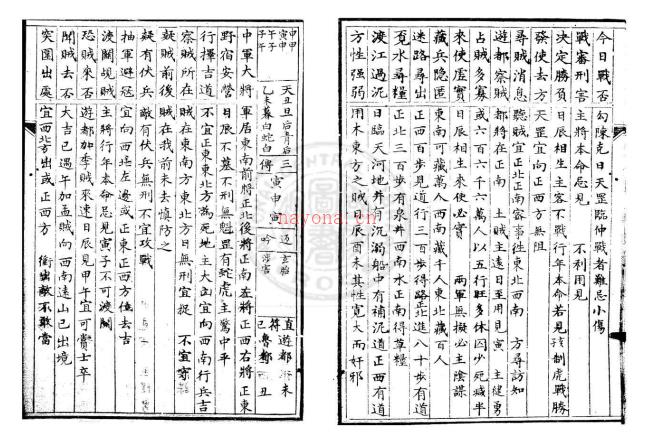 今日戰否 勾陳克日天罡臨仲戰者難忌小傷
戰審刑害 主將本命忌見 不利用見
決定勝負 日辰相生主客不戰行年本命若見 制虎戰勝
發使去方 天罡宜向正西方無阻
尋賊消息 聽賊宜正北正南客事往東北西南 方尋訪如
遊都察賊 都將在正南 賊主遠日至用見寅 主健勇
占賊多寡 或六百六千六萬人以五行旺多休囚少死減半
來使虛實 日辰相生來使必實 兩軍無擬必主陰謀
藏兵隱匿 東南可藏萬人西南藏千人東北藏百人
迷路尋出 正西百步見道行三百步得路北進八十步有道
覓水尋糧 正北三百步有泉井西南水正南得草糧
渡江過沉 日臨天河地井有沉溺船中有補沉道正西有道
方性强弱 用木東方之賊日辰酉未其性寬大而奸邪
甲申 甲寅 子午 午子
天丑旦后青后三
乙未暮白蛇白傳
寅申寅
吟
直 遊都 未
符 魯都 丑
己
中軍大將 軍居東南前將正北後將正南左將正西右將正東
野宿安營 日辰不墓不刑無魁罡有蛇虎主驚中平
行擇吉道 不宜正東東北方為死地主大凶宜向西南行兵吉
察賊所在 賊在東南方東北方日無刑宜捉 不宜守
疑賊前後 賊在我前未去慎防之
疑有伏兵 敵有伏兵無刑不宜攻戰
抽軍避寇 宜向西北左邊或正東正西方位去吉
渡關覘賊 主將行年本命忌見寅子不可渡關
恐賊來否 遊都加季賊來速日辰見甲午宜可賞士卒
聞賊去否 大吉已過午加孟賊向西南遠山已出境
突圍出處 宜西北方出或正西方 衝出敵不敢當
nayonai.com